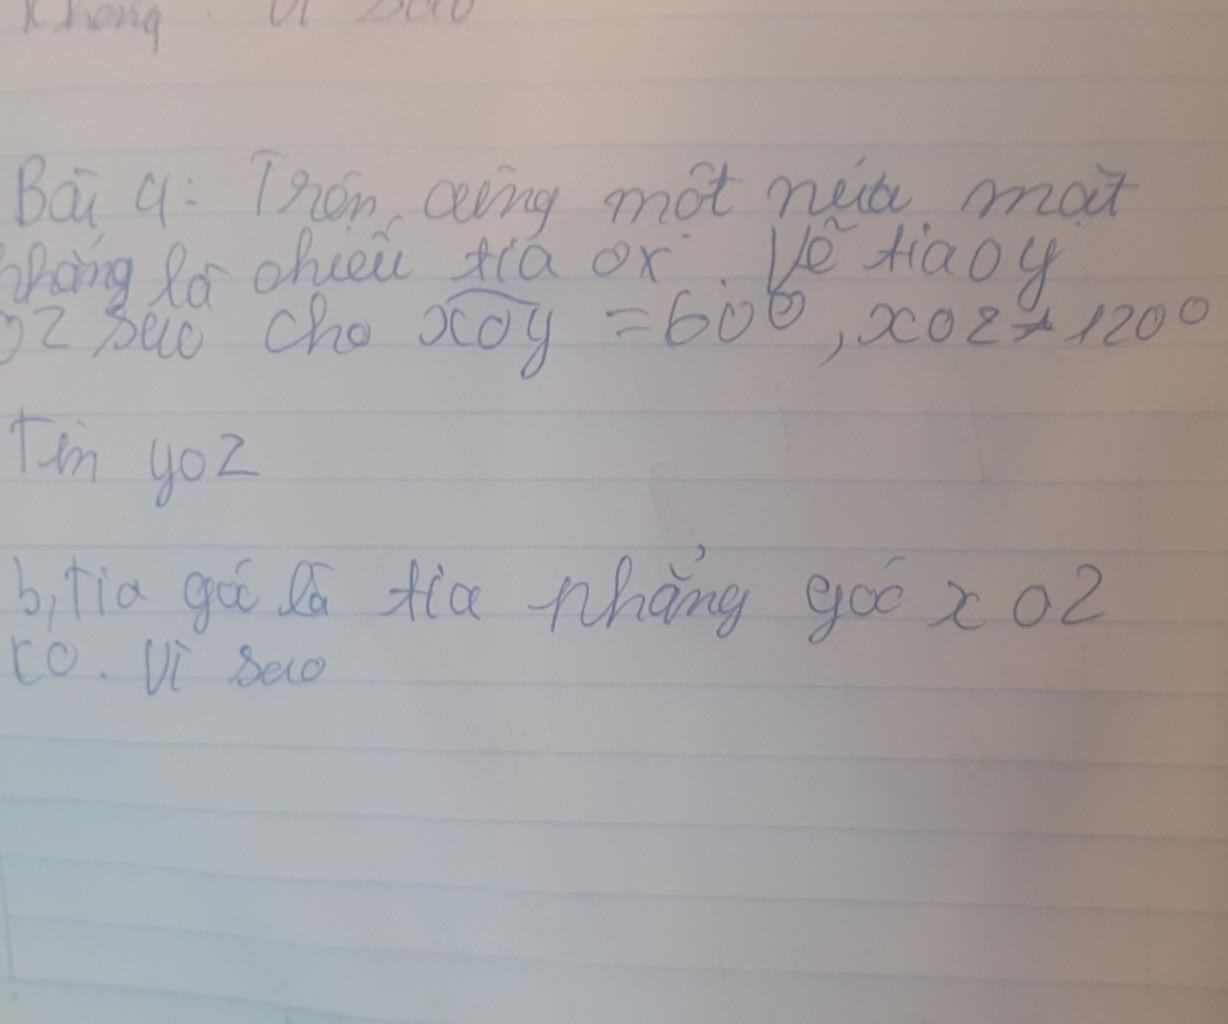 Không. Vì sao
Bài 4: Trên cùng một nửa mặt
phẳng là chiếu tia ox. Vẽ tia oy
oz sao cho xoy = 60⁰, xoz = 120⁰
Tín yoz
b, Tia góc là tia phẳng góc xoz
ko. Vì sao